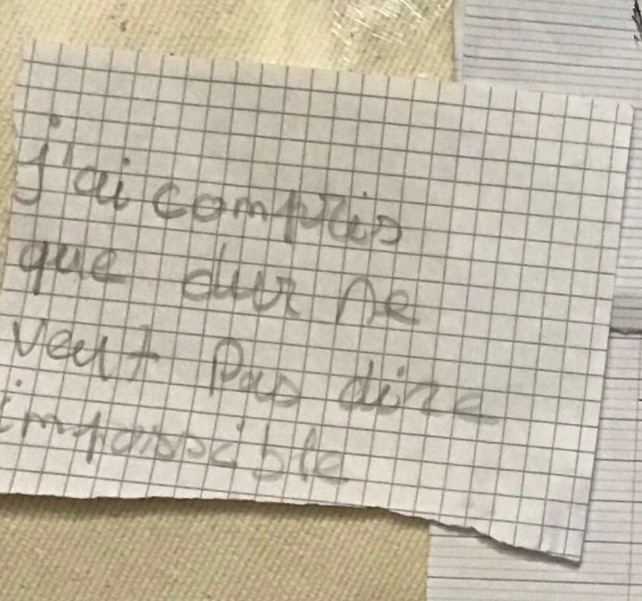 j'ai compris
que dur ne
veut pas dire
impossible